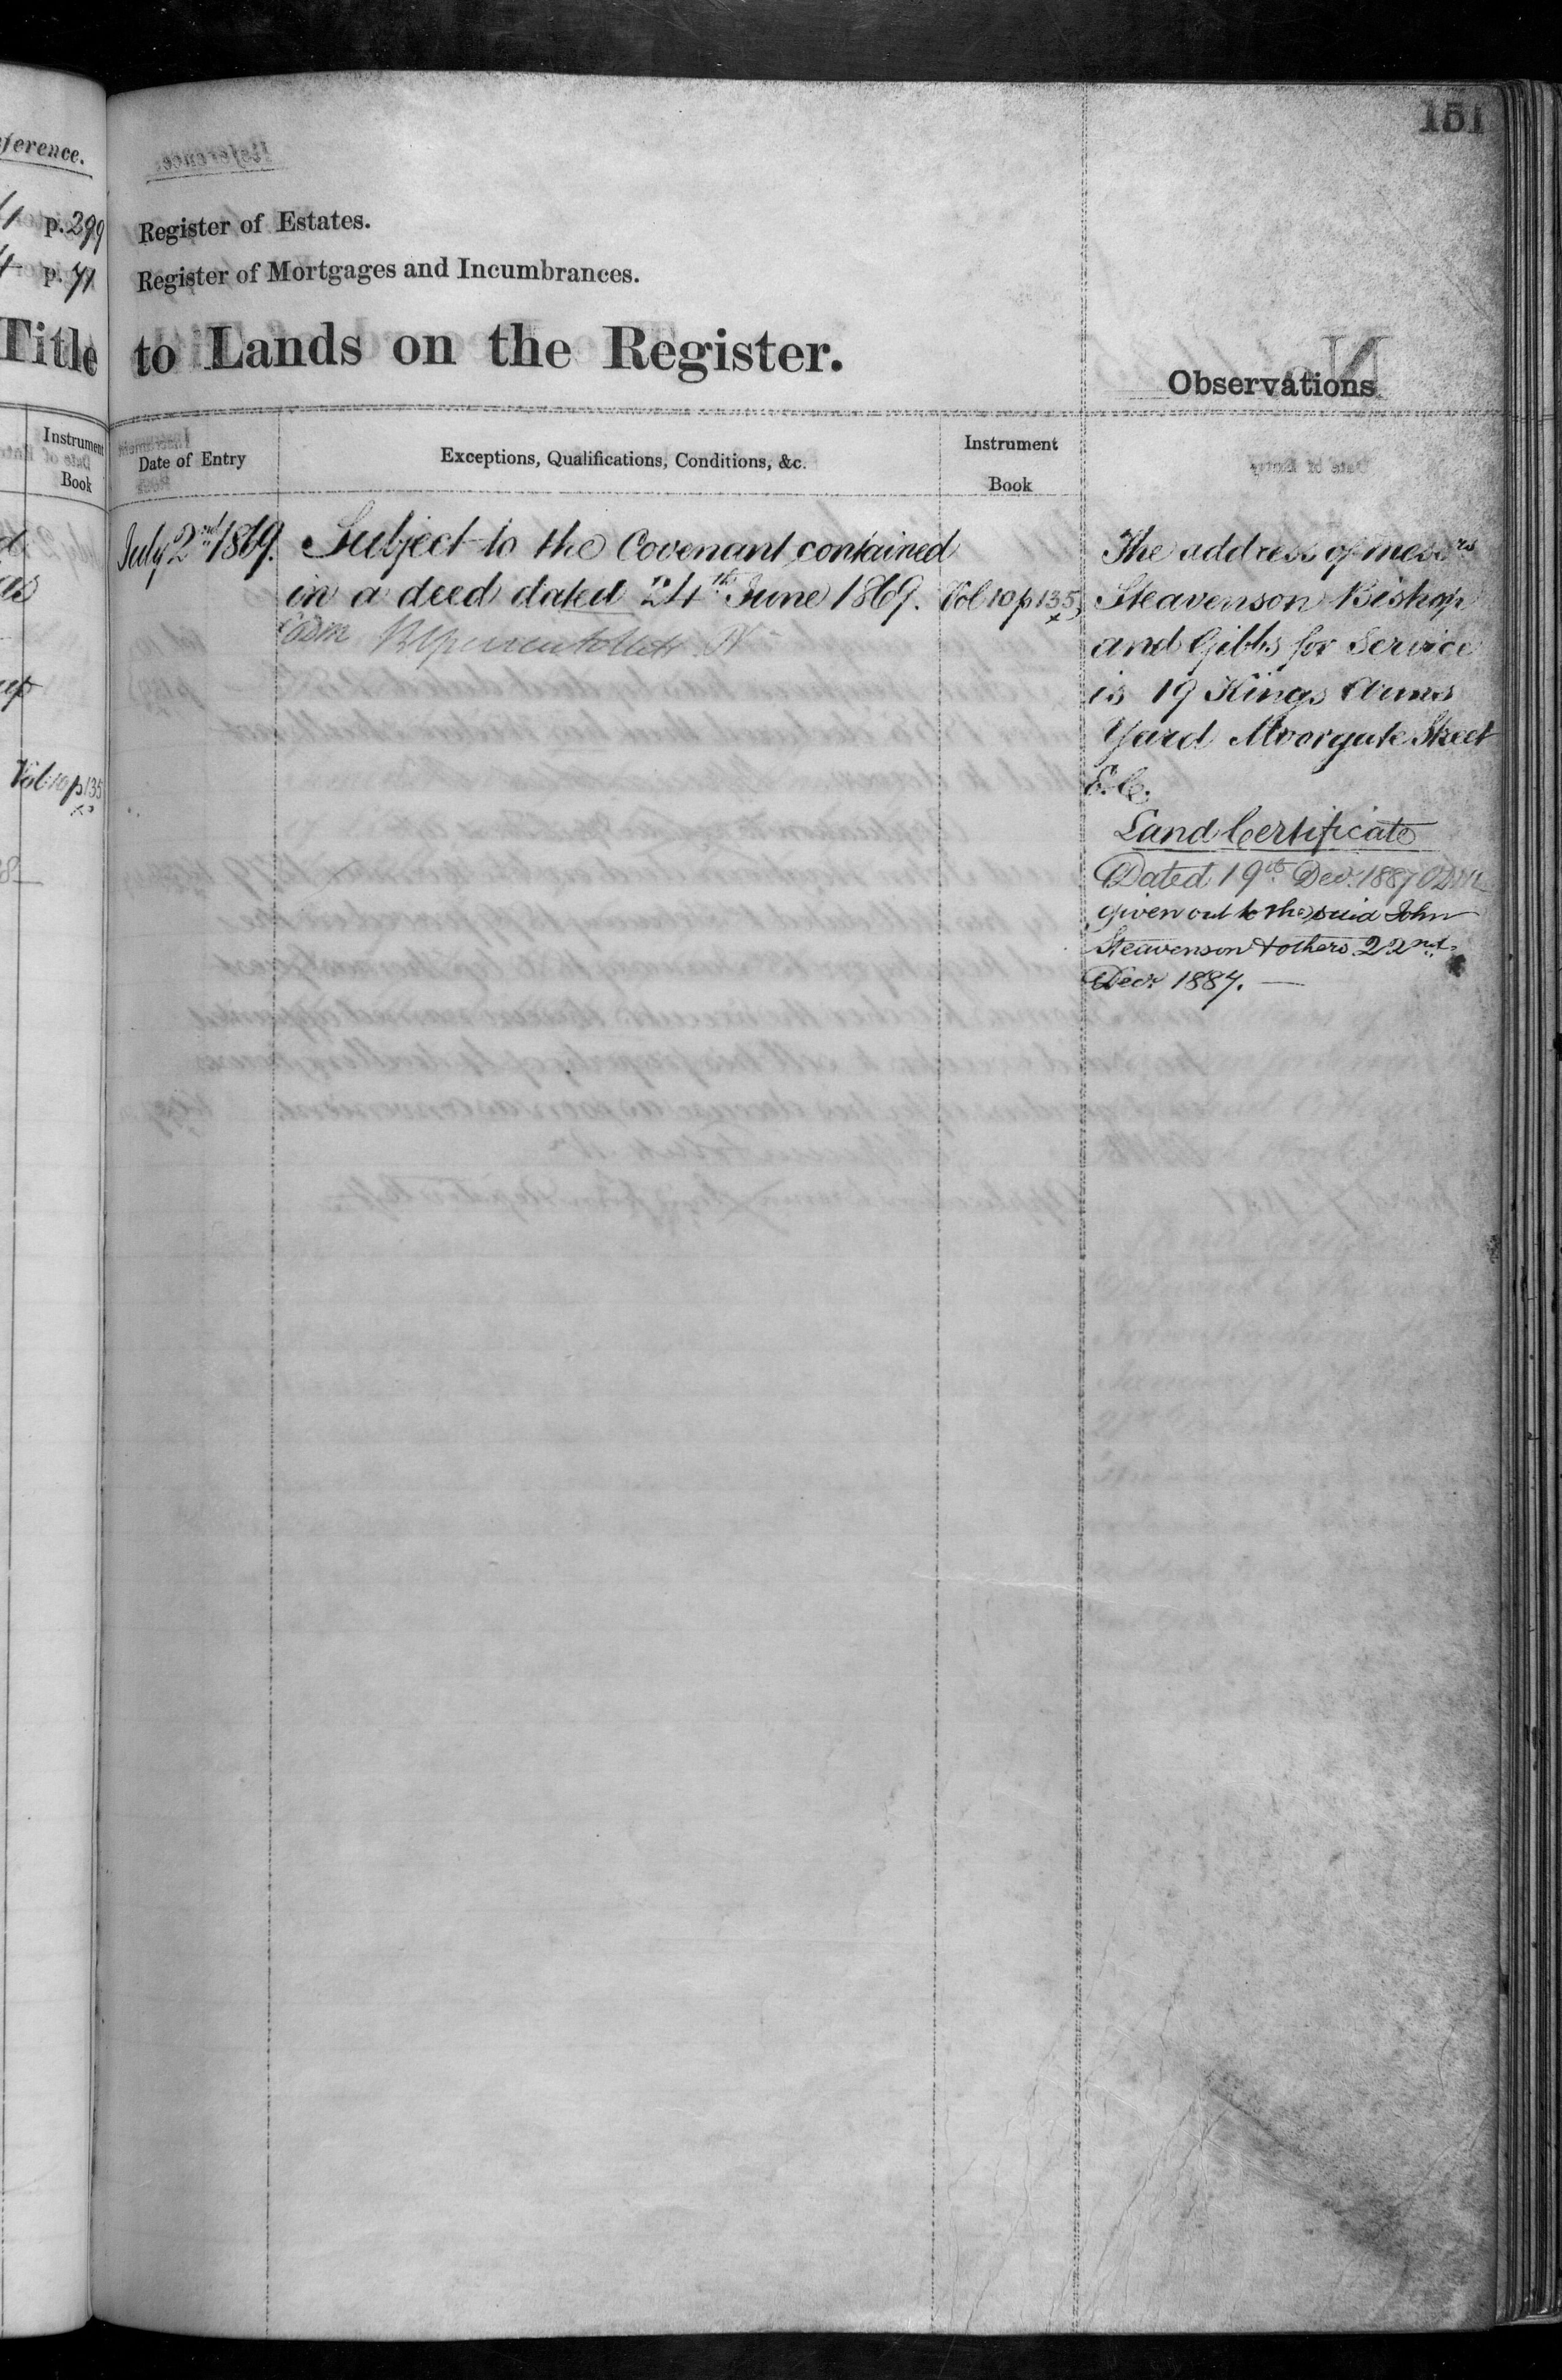 151
ference.
p. 299
p. 71
Title
Instrument
Book
Vol 10 p 135
Register of Estates.
Register of Mortgages and Incumbrances.
to Lands on the Register.
Observations
Date of Entry
Exceptions, Qualifications, Conditions, &c.
Instrument
Book
July 2nd 1869.
Subject to the Covenant contained
in a deed dated 24th June 1869.
Vol 10 p 135
The address of Messrs
Steavenson Bishop
and Gibbs for Service
is 19 Kings Arms
Yard Moorgate Street
E.C.
Land Certificate
Dated 19th Decr. 1887
given out to the said John
Steavenson & others 22nd
Decr. 1887.